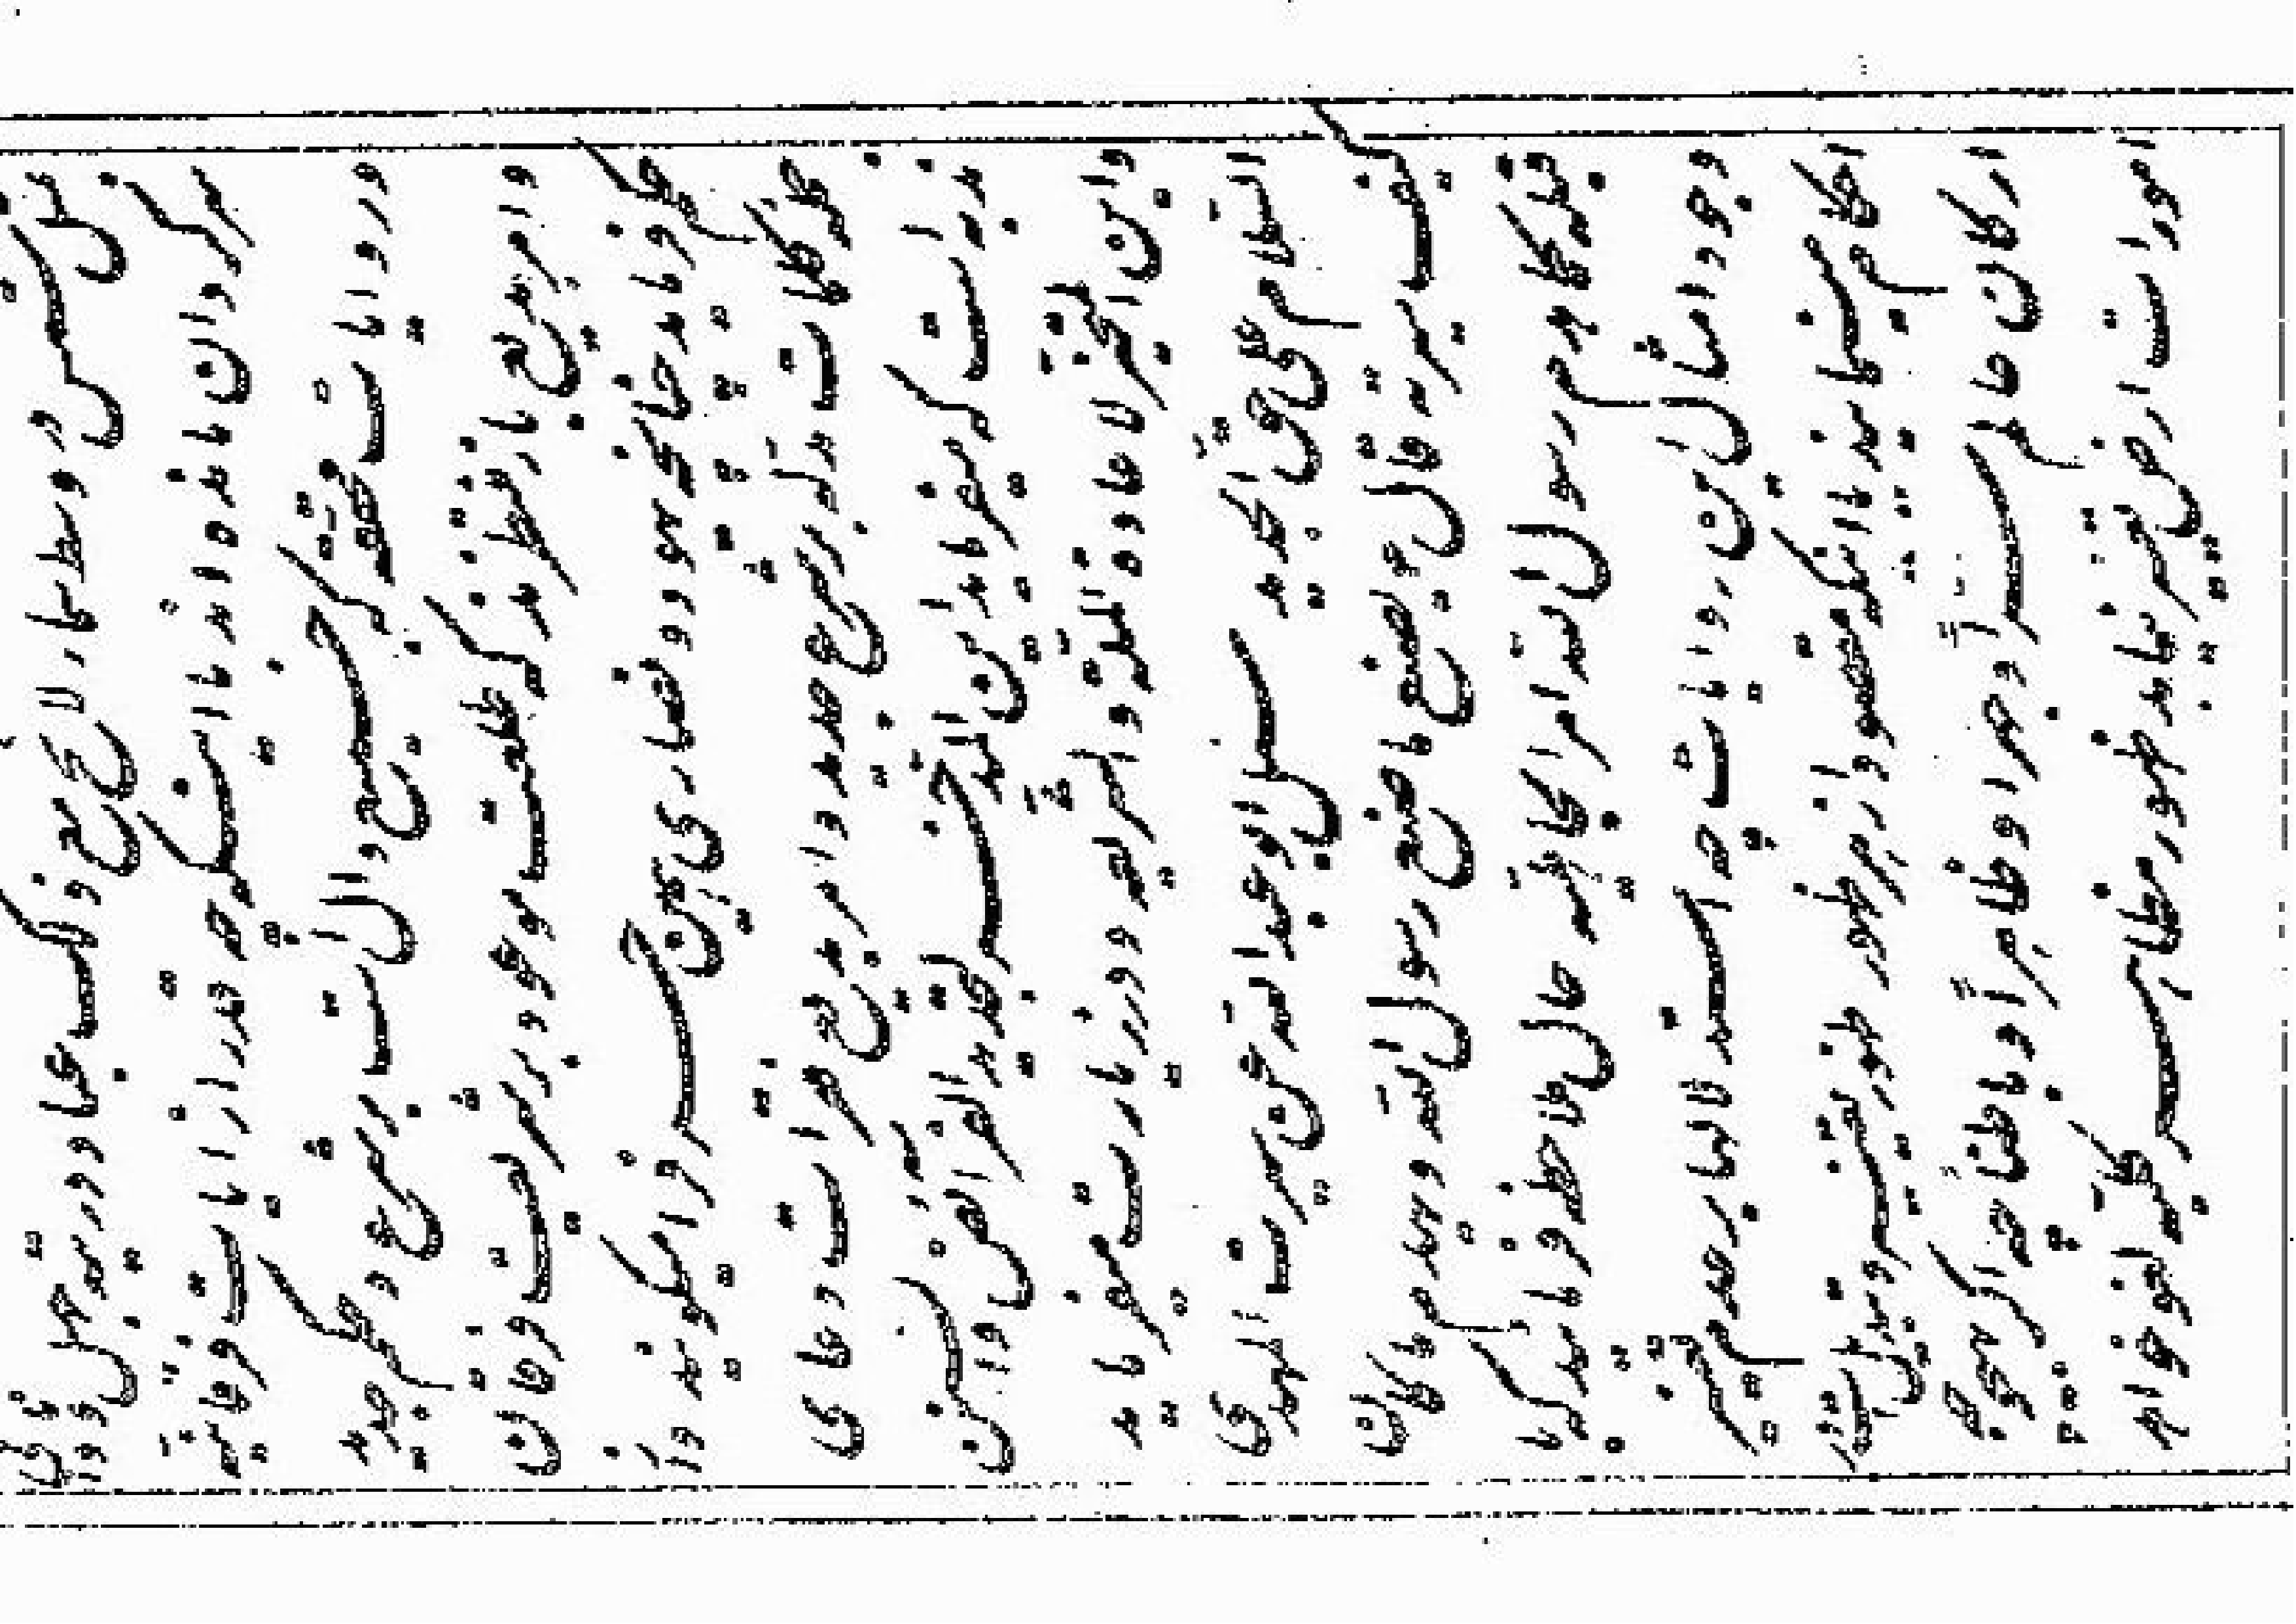 مثل شمس در وسط سماء لائح عباد در
سرگردان مانده‌اند با اینکه چقدر از آیات فرقانیه
و روایات محققه که جمیع دال است بر شرع و حکم جدید
و امر بدیع باز منتظرند که طلعت موعود بر شریعت فرقان
حکم فرماید چنانچه یهود و نصاری همین حرف را میگویند و از
جمله کلمات مدلّه بر شرع جدید و امر بدیع فقرات دعای
ندبه است که میفرماید این المدّخر لتجدید الفرائض و السنن
و این المتخیّر لاعادة الملّة و الشریعه و در زیارت میفرماید
السّلام علی الحقّ الجدید سئل ابو عبد اللّه عن سیرت المهدی
کیف سیرته قال یصنع ما صنع رسول اللّه و یهدم ما کان
قبله کما هدم رسول اللّه امر الجاهلیّه حال ملاحظه فرمائید که با
وجود امثال این روایات چه استدلالها بر عدم تغییر
احکام مینمایند با اینکه مقصود از هر ظهور ظهور تغییر و تبدیل است در
ارکان عالم سرّاً و جهراً و ظاهراً و باطناً چه اگر بهیچوجه
امورات ارض تغییر نیابد ظهور مظاهر کلّیه لغو خواهد